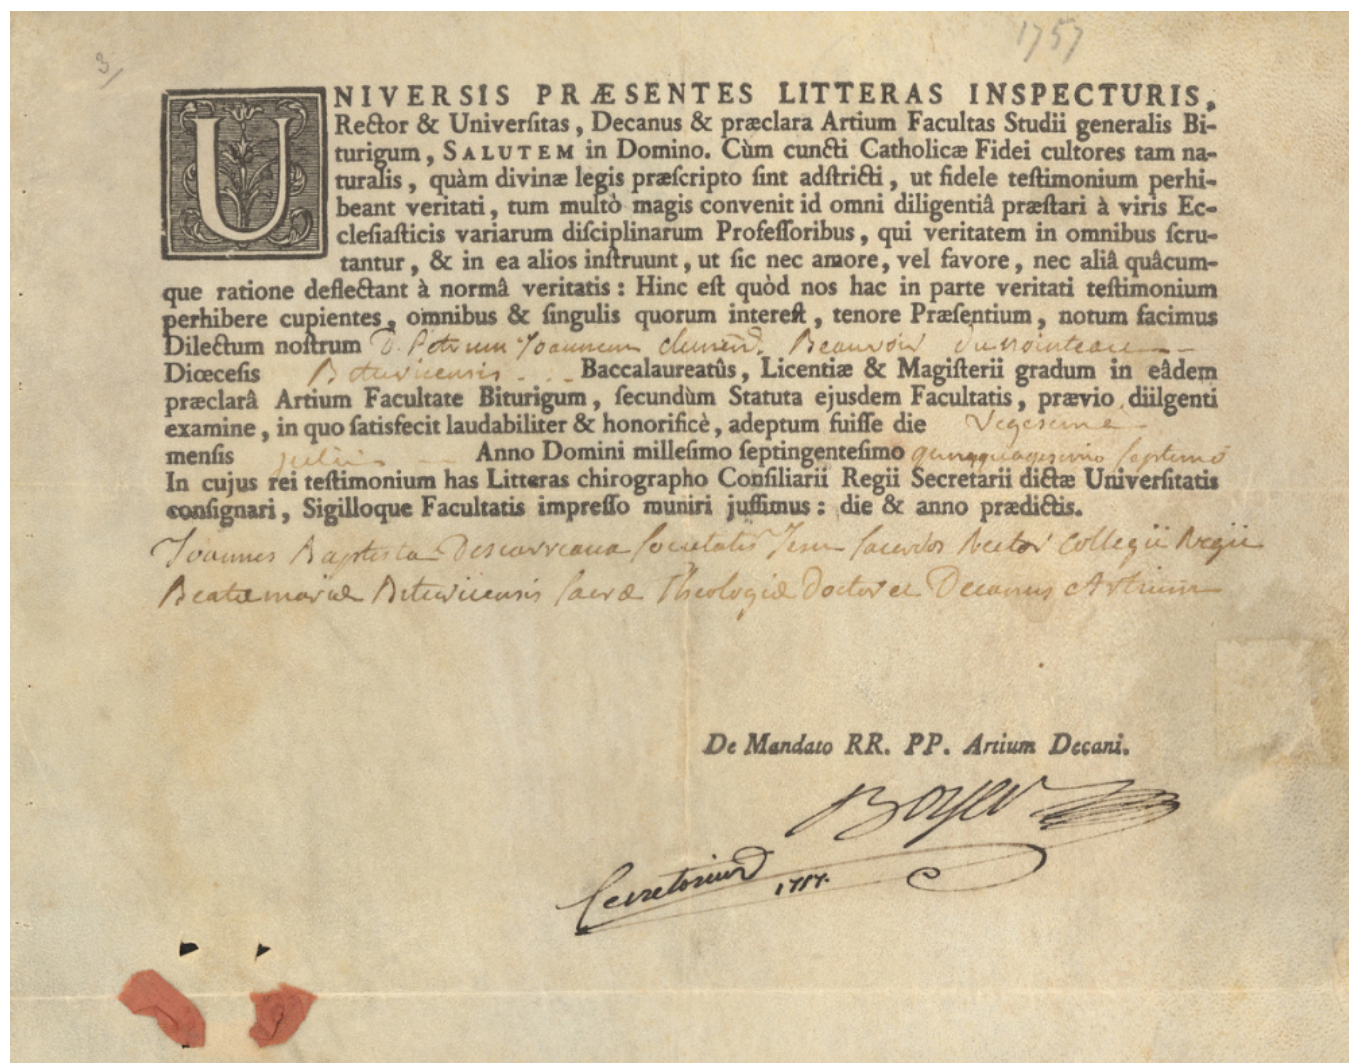 1757
3/
UNIVERSIS PRÆSENTES LITTERAS INSPECTURIS,
Rector & Univerſitas, Decanus & præclara Artium Facultas Studii generalis Bi-
turigum, SALUTEM in Domino. Cùm cuncti Catholicæ Fidei cultores tam na-
turalis, quàm divinæ legis præſcripto ſint adſtricti, ut fidele teſtimonium perhi-
beant veritati, tum multò magis convenit id omni diligentiâ præſtari à viris Ec-
cleſiaſticis variarum diſciplinarum Profeſſoribus, qui veritatem in omnibus ſcru-
tantur, & in ea alios inſtruunt, ut ſic nec amore, vel favore, nec aliâ quâcum-
que ratione deflectant à normâ veritatis : Hinc eſt quòd nos hac in parte veritati teſtimonium
perhibere cupientes, omnibus & ſingulis quorum intereſt, tenore Præſentium, notum facimus
Dilectum noſtrum D. Petrum Joannem Beauvoir
Diœceſis Bituricensis Baccalaureatûs, Licentiæ & Magiſterii gradum in eâdem
præclarâ Artium Facultate Biturigum, ſecundùm Statuta ejuſdem Facultatis, prævio diilgenti
examine, in quo ſatisfecit laudabiliter & honorificè, adeptum fuiſſe die Vigesima
menſis julii Anno Domini milleſimo ſeptingenteſimo quinquagesimo septimo
In cujus rei teſtimonium has Litteras chirographo Conſiliarii Regii Secretarii dictæ Univerſitatis
conſignari, Sigilloque Facultatis impreſſo muniri juſſimus : die & anno prædictis.
Joannes Baptista societatis Jesu sacerdos Rector Collegii Regii
Beatæ mariæ Bituricensis sacræ Theologiæ Doctor et Decanus Artium
De Mandato RR. PP. Artium Decani.
Boyer
1757.